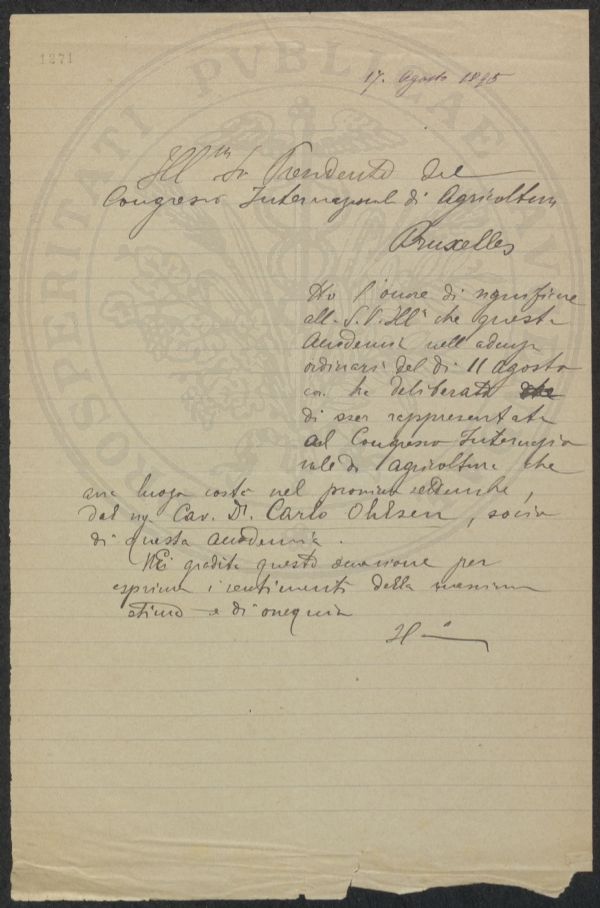 1271
17. Agosto 1895
Ill.mo Sr Presidente del
Congresso Internazionale di Agricoltura
Bruxelles
Ho l'onore di significare
alla S.V.Ill.a che questa
Accademia nell'adunza
ordinaria del dì 11 agosto
ha deliberato che
di esser rappresentata
al Congresso Internazio
nale di agricoltura che
avrà luogo costà nel prossimo settembre,
dal sig. Cav. Dr. Carlo Ohlsen, socio
di questa Accademia.
Mi è gradita questa occasione per
esprimere i sentimenti della massima
stima e di ossequio
PROSPERITATI PVBLICAE